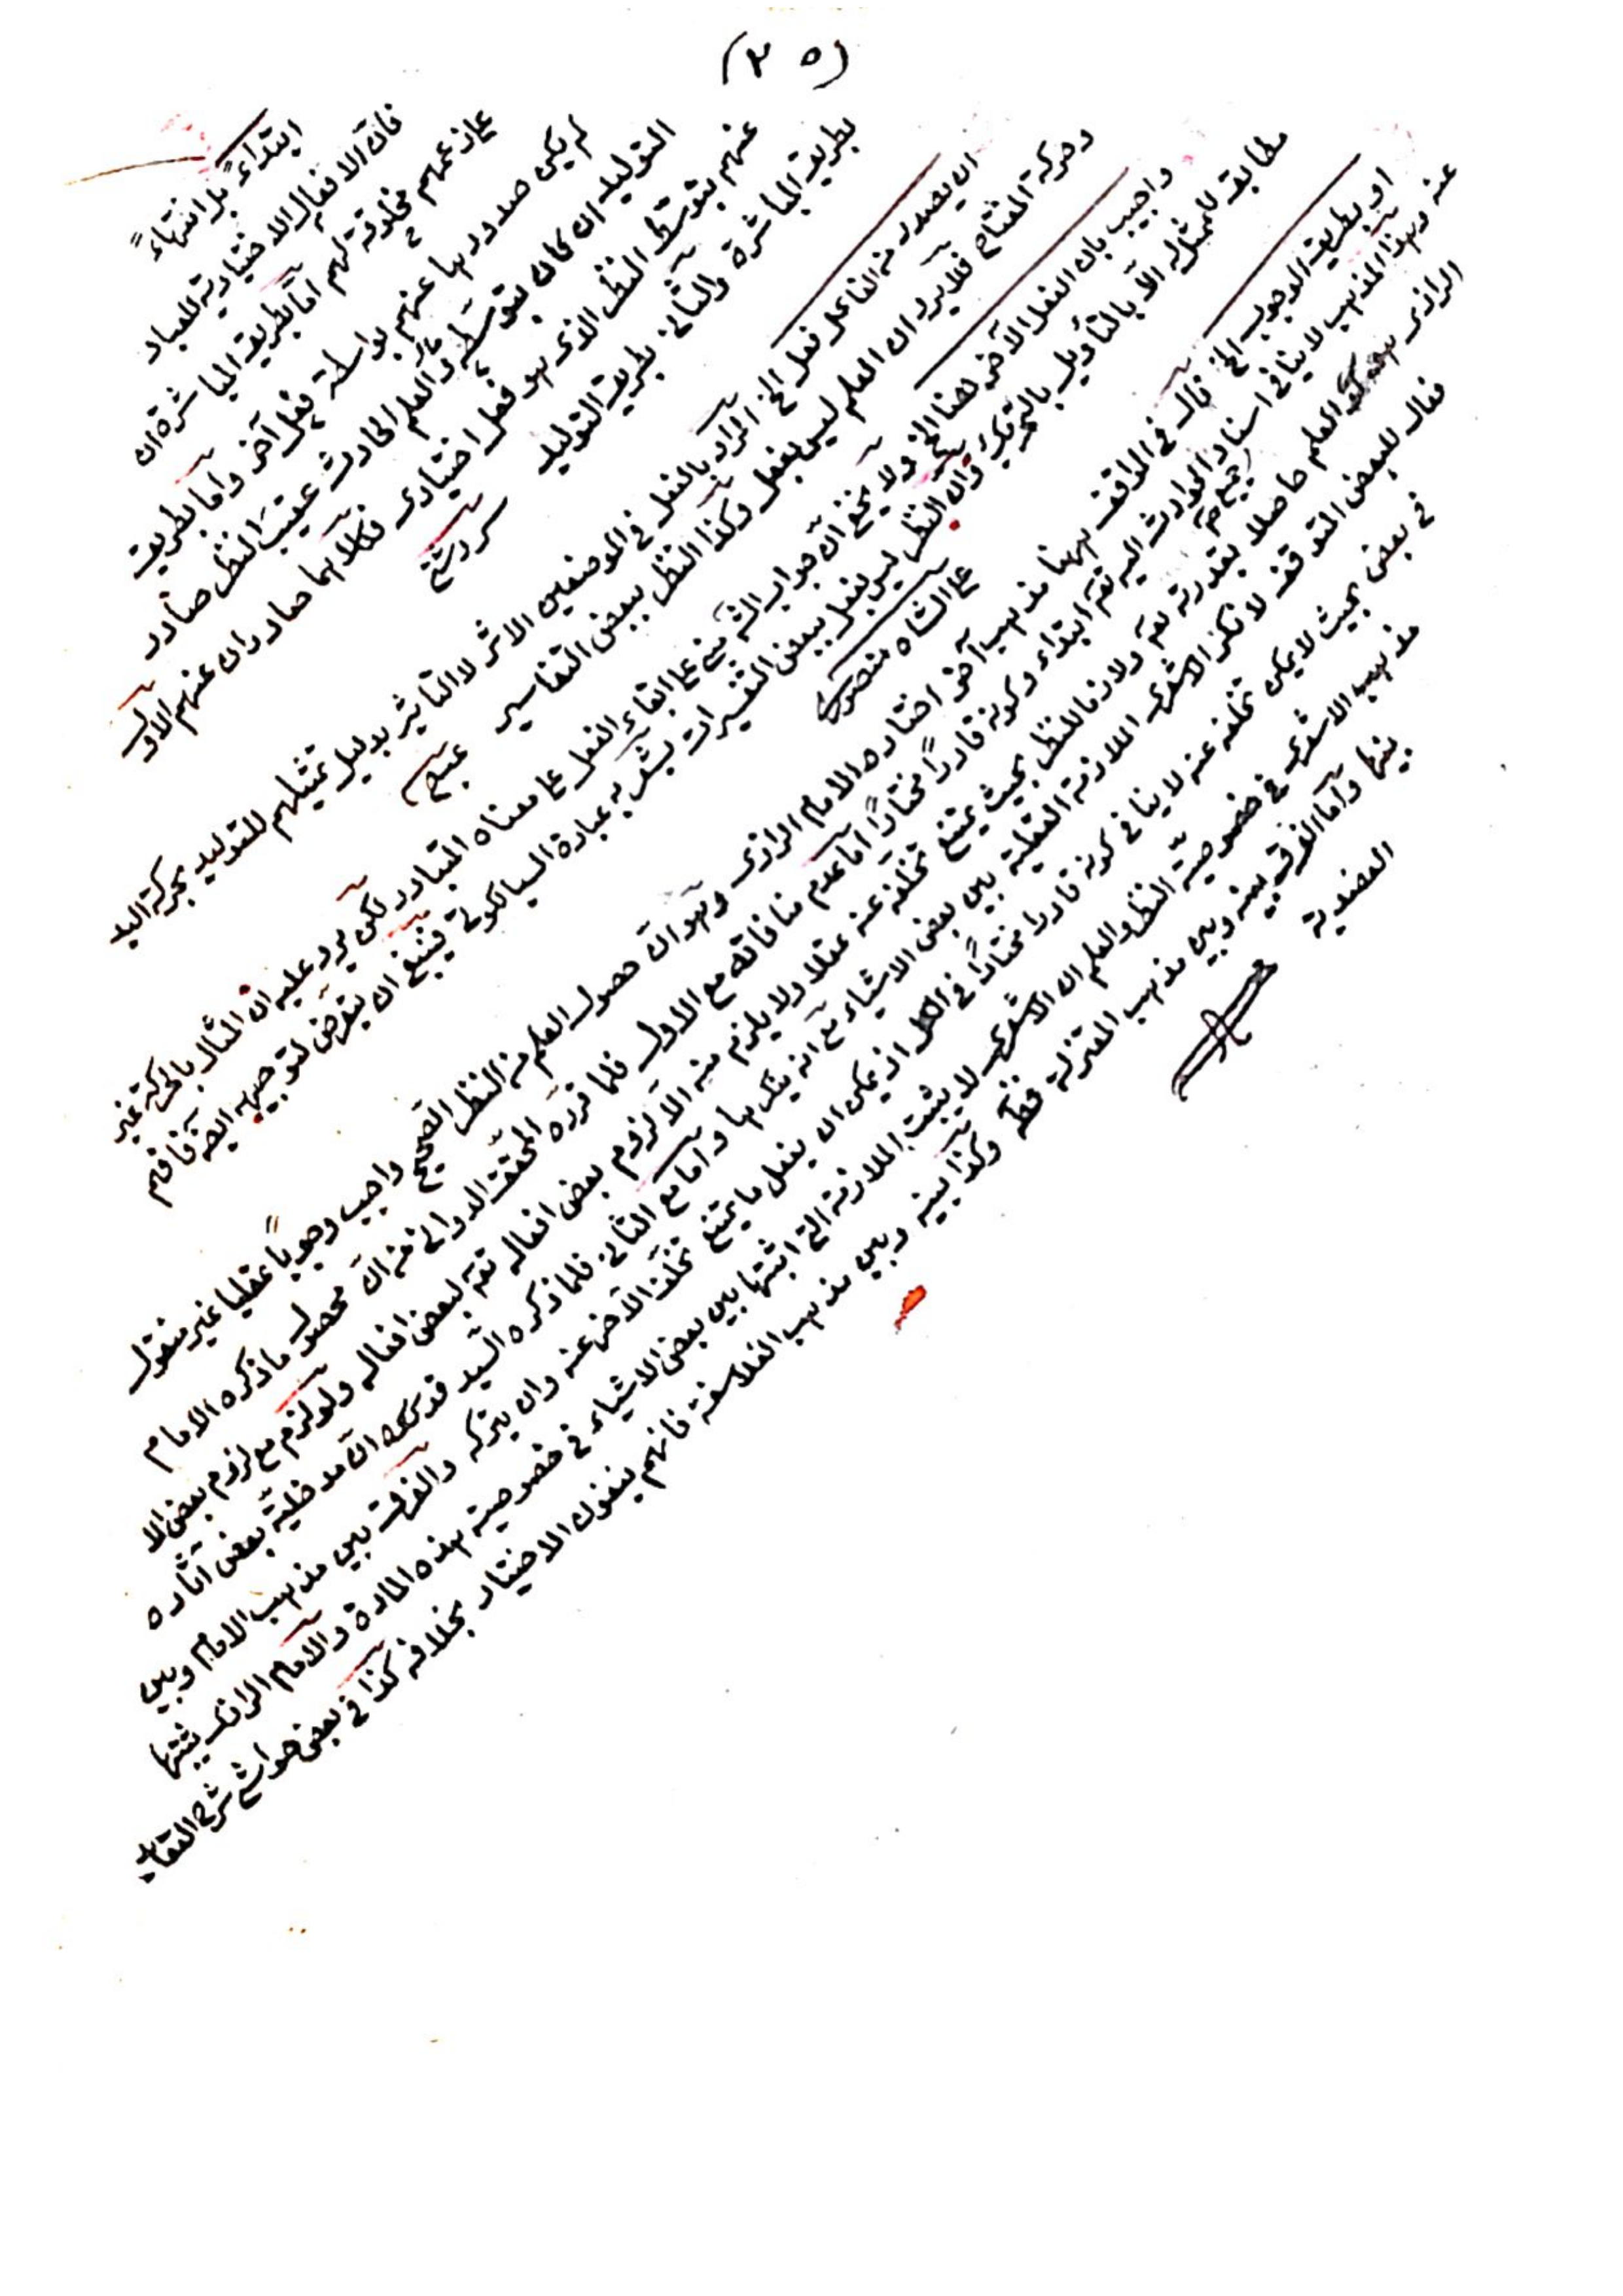 (٣٥)
ابتداءً بلا انتهاءً
فان الافعال الاختيارية للعباد
عازعمهم مخلوقة لهم اما بطريق المباشرة ان
لم يكن صدورها عنهم بواسطة فعل آخر واما بطريق
التوليد ان كان بتوسطه والعلم الحادث عقيب النظر صادر
عنهم بتوسط النظر الذى هو فعل اختيارى فكلاهما صادران عنهم الاول
بطريق المباشرة والثانى بطريق التوليد
ان يصدر من الفاعل فعل الخ المراد بالفعل فى الموضعين الاثر لا التأثير بدليل تمثيلهم للتوليد بحركة اليد
وحركة المفتاح فلا يرد ان العلم ليس بفعل وكذا النظر ببعض التفاسير
واجيب بان الفعل الآخر لهنا الخ ولا يخفى ان جواب الش مبنى على ابقاء الفعل على معناه المتبادر لكن يرد عليه ان المثال بالحركة غير
مطابق للممثل له الا بالتأويل بالتحريك وان النظر ليس بفعل ببعض التفسيرات يشعر به عبارة السيالكوتى فينبغى ان يتعرض لتوجيهه ايضا فافهم
على الشاه منصورى
او بطريق الوجوب الخ قال فى المواقف ههنا مذهب آخر اختاره الامام الرازى وهو ان حصول العلم من النظر الصحيح واجب وجوباً عقليا غير متولد
عنه وهذا المذهب لا ينافى اسناد الحوادث اليه تع ابتداء وكونه قادراً مختاراً اما عدم منافاته مع الاول فلما قرره المحقق الدوانى من ان محصول ما ذكره الامام
جميع
الرازى هو كون العلم حاصلا بقدرته تع ولازما للنظر بحيث يمتنع تخلفه عنه عقلا ولا يلزم منه الا لزوم بعض افعاله تع لبعض افعاله ولو لزم مع لزوم بعض الا
فعال للبعض التوقف لا نكر الاشعرى الملازمة العقلية بين بعض الاشياء مع انه ينكرها واما مع الثانى فلما ذكره السيد قدس سره ان مدخلية بعض آثاره
فى بعض بحيث لا يمكن تخلفه عنه لا ينافى كونه قادرا مختاراً فى الكل اذ يمكن ان يفعل ما يمتنع تخلف الآخر عنه وان يتركه والفرق بين مذهب الامام وبين
مذهب الاشعرى فى خصوصية النظر والعلم ان الاشعرى لا يثبت الملازمة التى اثبتها بين بعض الاشياء فى خصوصية هذه المادة والامام الرازى يثبتها
بينها واما الفرق بينه وبين مذهب المعتزلة فظ وكذا بينه وبين مذهب الفلاسفة فانهم ينفون الاختيار بخلافه كذا فى بعض حواشى شرح العقايد
العضدية